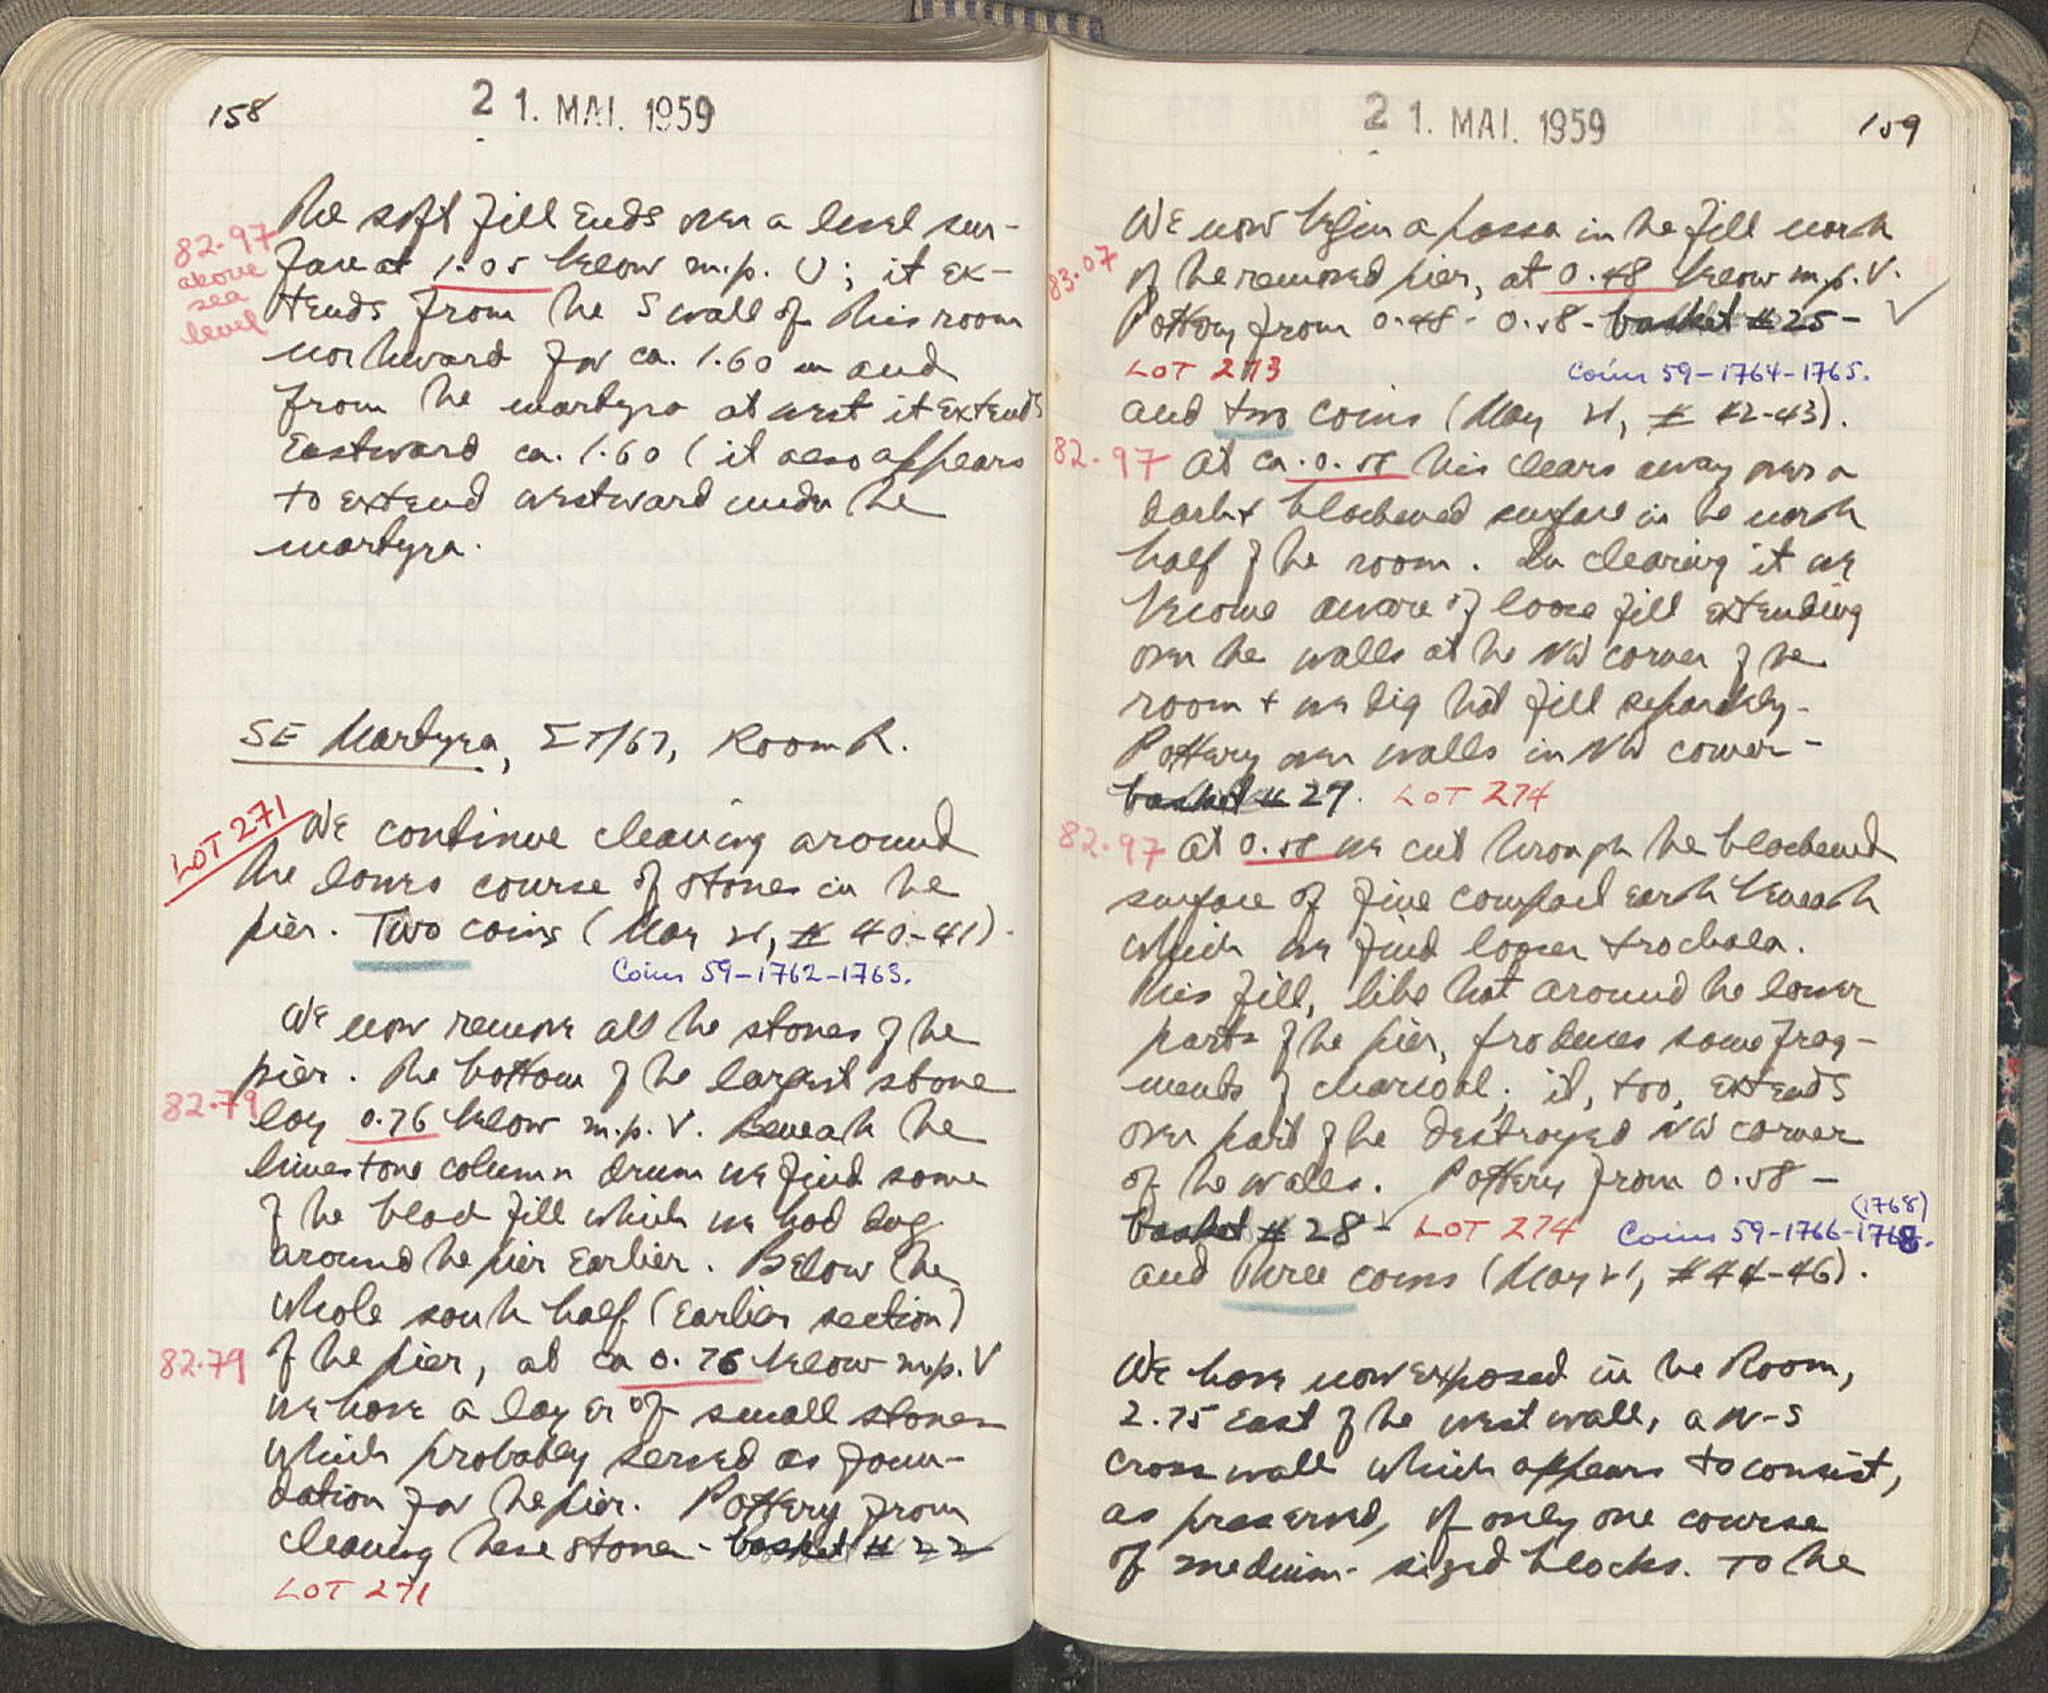 158
21. MAI. 1959
82.97
above
sea
level
The soft fill ends over a level sur-
face at 1.05 below m.p. U; it ex-
tends from the S wall of this room
northward for ca. 1.60 m and
from the martyra at west it extends
eastward ca. 1.60 (it also appears
to extend westward under the
martyra.
SE Martyra, ΣΤ/67, Room R.
LOT 271
We continue cleaning around
the lower course of stones in the
pier. Two coins (May 21, # 40-41).
Coins 59-1762-1763.
We now remove all the stones of the
pier. The bottom of the largest stone
82.79
lay 0.76 below m.p. V. Beneath the
limestone column drum we find some
of the black fill which we had dug
around the pier earlier. Below the
whole south half (earlier section)
82.79
of the pier, at ca 0.76 below m.p. V
we have a layer of small stones
which probably served as foun-
dation for the pier. Pottery from
cleaning these stones - basket # 22
LOT 271
21. MAI. 1959
159
We now begin a passa in the fill north
83.07
of the removed pier, at 0.48 below m.p. V.
Pottery from 0.48 - 0.58 - basket # 25 -
LOT 273
Coins 59-1764-1765.
and two coins (May 21, # 42-43).
82.97
At ca. 0.58 this clears away over a
dark + blackened surface in the north
half of the room. In clearing it we
become aware of loose fill extending
over the walls at the NW corner of the
room + we dig that fill separately.
Pottery over walls in NW corner -
basket # 29. LOT 274
82.97
At 0.58 we cut through the blackened
surface of fine compact earth beneath
which we find looser trochala.
This fill, like that around the lower
parts of the pier, produces some frag-
ments of charcoal; it, too, extends
over part of the destroyed NW corner
of the walls. Pottery from 0.58 -
(1768)
basket # 28 - LOT 274 Coins 59-1766-1768.
and three coins (May 21, # 44-46).
We have now exposed in the Room,
2.75 east of the west wall, a N-S
cross wall which appears to consist,
as preserved, of only one course
of medium-sized blocks. To the